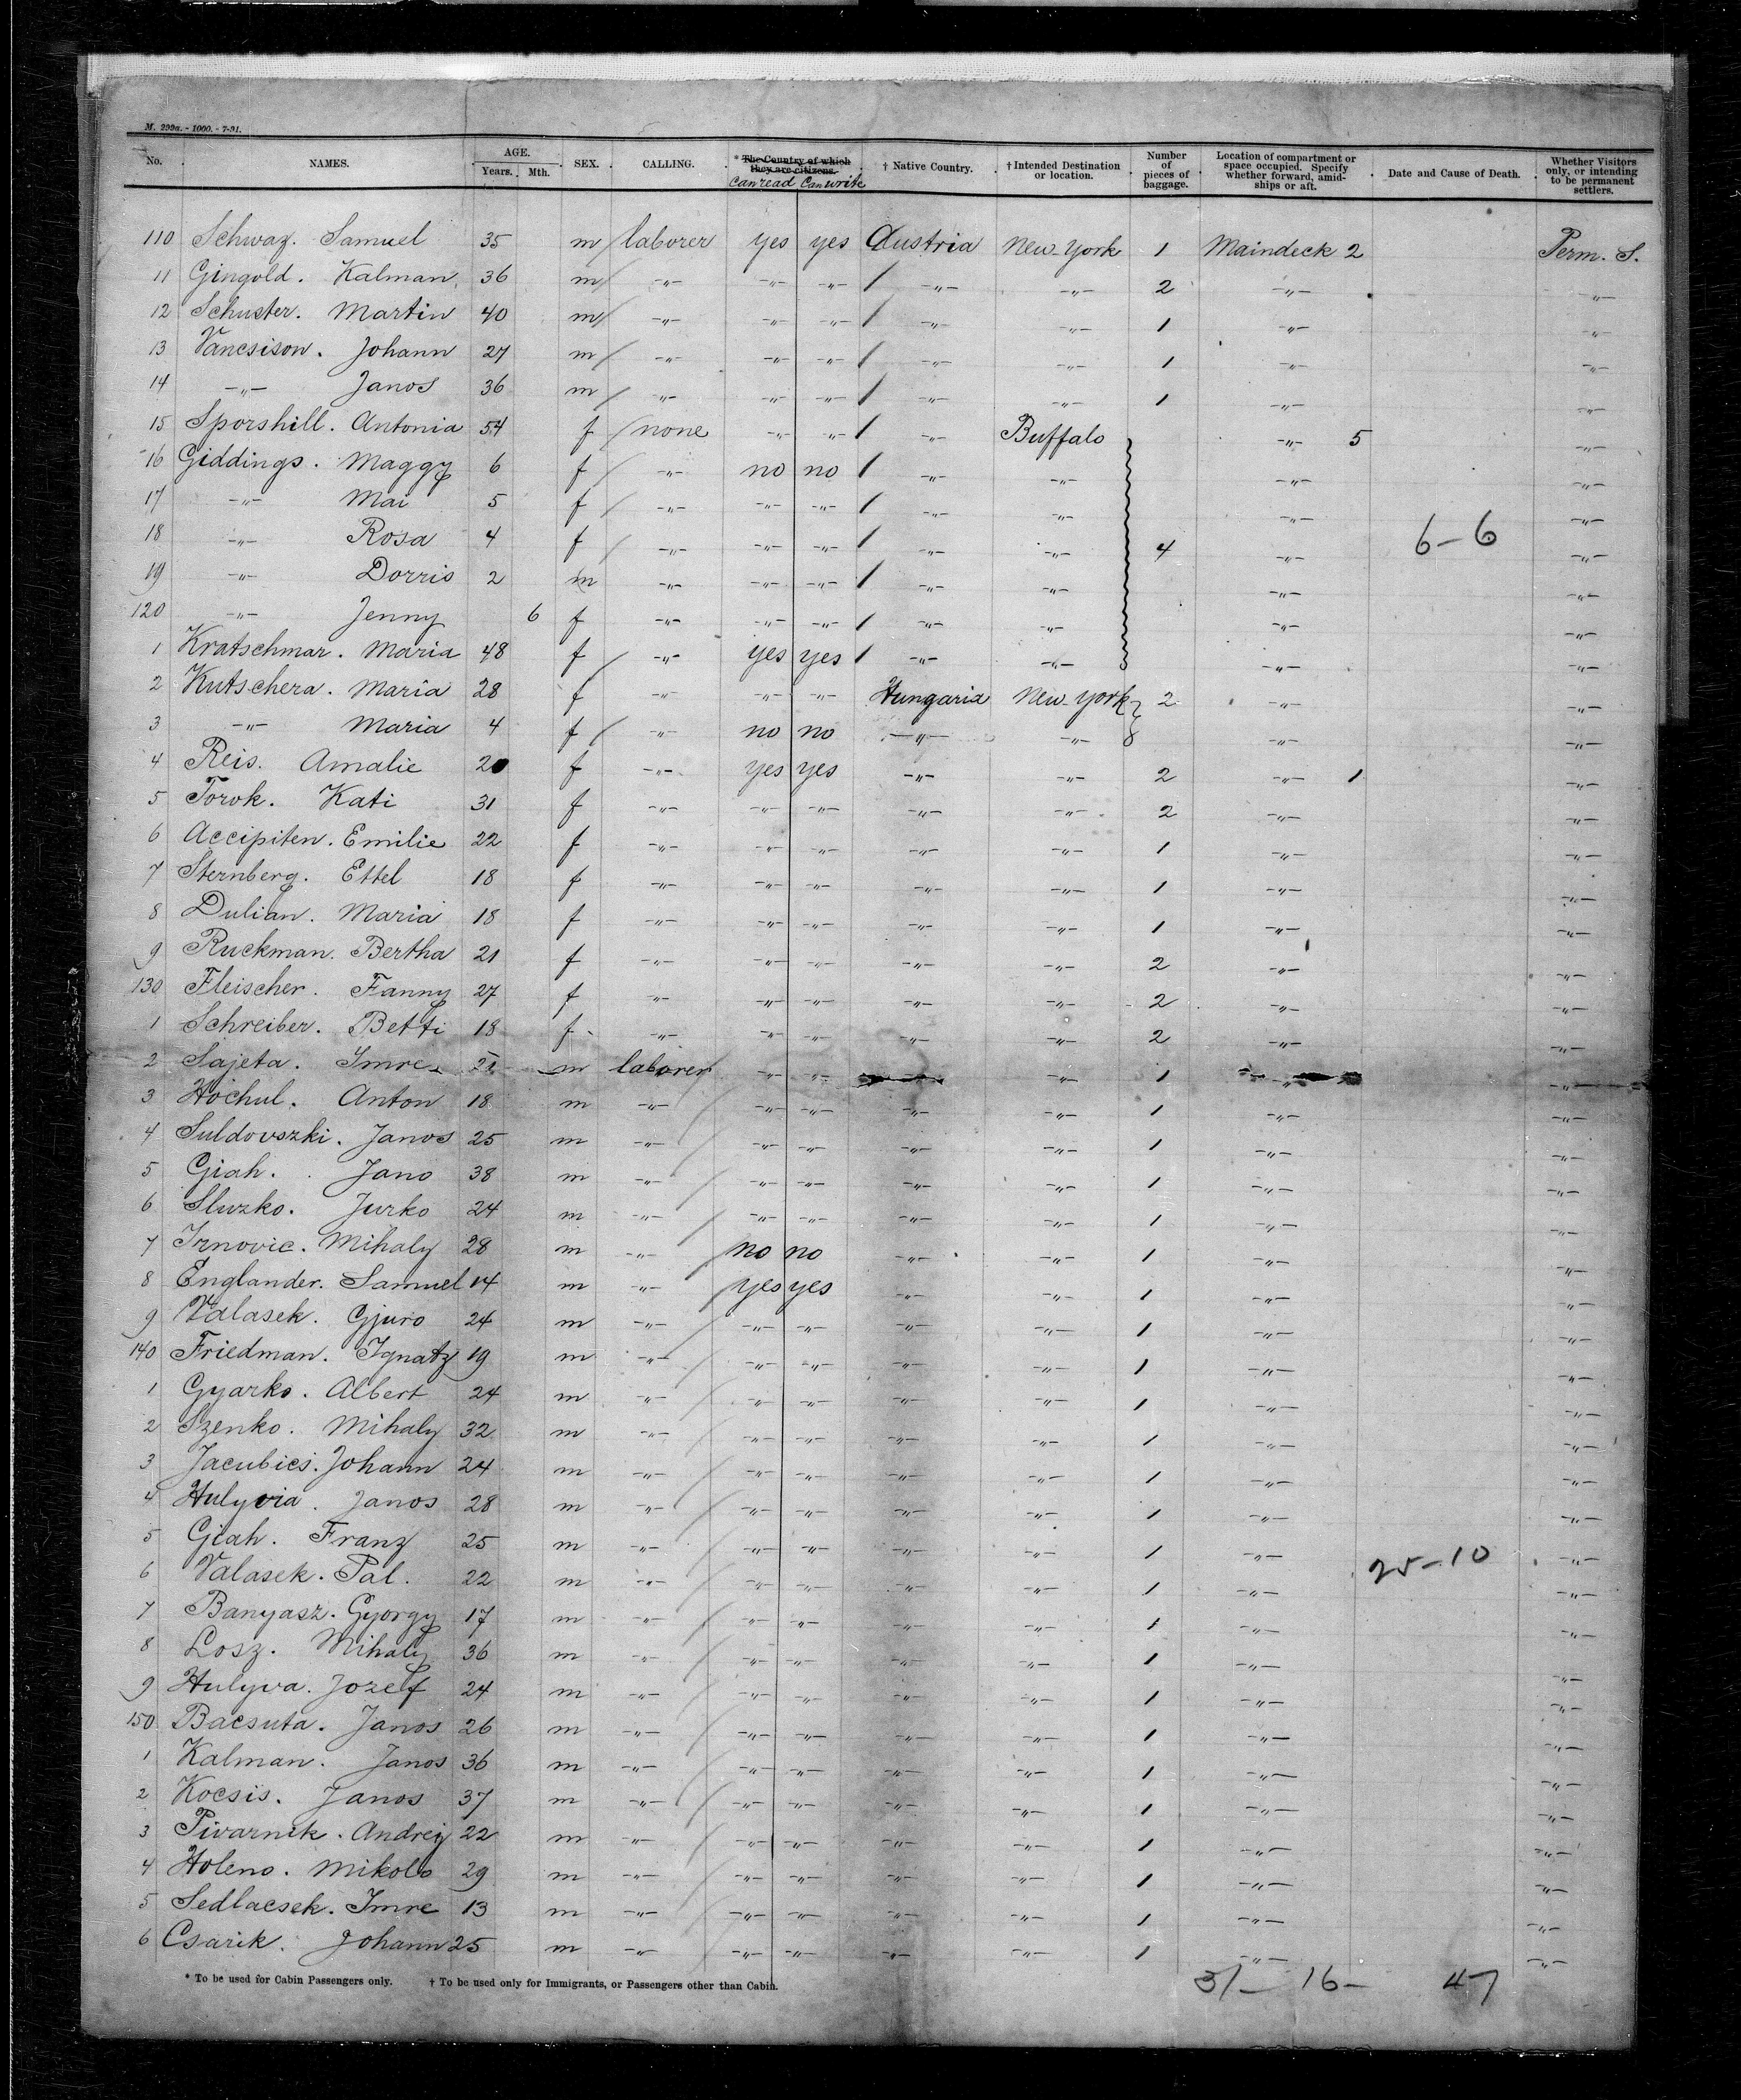 M. 299a. - 1000. - 7-91.
No. NAMES. AGE. Years. Mth. SEX. CALLING. * The Country of which they are citizens. Can read Can write † Native Country. † Intended Destination or location. Number of pieces of baggage. Location of compartment or space occupied. Specify whether forward, amidships or aft. Date and Cause of Death. Whether Visitors only, or intending to be permanent settlers.
110 Schwaz. Samuel 35 m laborer yes yes Austria New-York 1 Maindeck 2 Perm. S.
11 Gingold. Kalman 36 m -"- -"- -"- -"- -"- 2 -"- -"-
12 Schuster. Martin 40 m -"- -"- -"- -"- -"- 1 -"- -"-
13 Vancsison. Johann 27 m -"- -"- -"- -"- -"- 1 -"- -"-
14 -"- Janos 36 m -"- -"- -"- -"- -"- 1 -"- -"-
15 Sporshill. Antonia 54 f none -"- -"- -"- Buffalo -"- 5 -"-
16 Giddings. Maggy 6 f -"- no no -"- -"- -"- -"-
17 -"- Mai 5 f -"- -"- -"- -"- -"- -"- -"-
18 -"- Rosa 4 f -"- -"- -"- -"- -"- 4 -"- 6-6 -"-
19 -"- Dorris 2 m -"- -"- -"- -"- -"- -"- -"-
120 -"- Jenny 6 f -"- -"- -"- -"- -"- -"- -"-
1 Kratschmar. Maria 48 f -"- yes yes -"- -"- -"- -"-
2 Kutschera. Maria 28 f -"- -"- -"- Hungaria New-York 2 -"- -"-
3 -"- Maria 4 f -"- no no -"- -"- -"- -"-
4 Reis. Amalie 20 f -"- yes yes -"- -"- 2 -"- 1 -"-
5 Torok. Kati 31 f -"- -"- -"- -"- -"- 2 -"- -"-
6 Accipiten. Emilie 22 f -"- -"- -"- -"- -"- 1 -"- -"-
7 Sternberg. Ettel 18 f -"- -"- -"- -"- -"- 1 -"- -"-
8 Dulian. Maria 18 f -"- -"- -"- -"- -"- 1 -"- -"-
9 Ruckman. Bertha 21 f -"- -"- -"- -"- -"- 2 -"- -"-
130 Fleischer. Fanny 27 f -"- -"- -"- -"- -"- 2 -"- -"-
1 Schreiber. Betti 18 f -"- -"- -"- -"- -"- 2 -"- -"-
2 Sajeta. Imre 21 m laborer -"- -"- -"- -"- 1 -"- -"-
3 Hochul. Anton 18 m -"- -"- -"- -"- -"- 1 -"- -"-
4 Suldovszki. Janos 25 m -"- -"- -"- -"- -"- 1 -"- -"-
5 Giah. Jano 38 m -"- -"- -"- -"- -"- 1 -"- -"-
6 Sluzko. Jurko 24 m -"- -"- -"- -"- -"- 1 -"- -"-
7 Irnovic. Mihaly 28 m -"- no no -"- -"- 1 -"- -"-
8 Englander. Samuel 14 m -"- yes yes -"- -"- 1 -"- -"-
9 Valasek. Gjuro 24 m -"- -"- -"- -"- -"- 1 -"- -"-
140 Friedman. Ignatz 19 m -"- -"- -"- -"- -"- 1 -"- -"-
1 Gyarko. Albert 24 m -"- -"- -"- -"- -"- 1 -"- -"-
2 Szenko. Mihaly 32 m -"- -"- -"- -"- -"- 1 -"- -"-
3 Jacubics. Johann 24 m -"- -"- -"- -"- -"- 1 -"- -"-
4 Hulyvia. Janos 28 m -"- -"- -"- -"- -"- 1 -"- -"-
5 Giah. Franz 25 m -"- -"- -"- -"- -"- 1 -"- 25-10 -"-
6 Valasek. Pal. 22 m -"- -"- -"- -"- -"- 1 -"- -"-
7 Banyasz. Gyorgy 17 m -"- -"- -"- -"- -"- 1 -"- -"-
8 Losz. Mihaly 36 m -"- -"- -"- -"- -"- 1 -"- -"-
9 Hulyva. Jozef 24 m -"- -"- -"- -"- -"- 1 -"- -"-
150 Bacsuta. Janos 26 m -"- -"- -"- -"- -"- 1 -"- -"-
1 Kalman. Janos 36 m -"- -"- -"- -"- -"- 1 -"- -"-
2 Kocsis. Janos 37 m -"- -"- -"- -"- -"- 1 -"- -"-
3 Pivarnik. Andrej 22 m -"- -"- -"- -"- -"- 1 -"- -"-
4 Holeno. Mikolo 29 m -"- -"- -"- -"- -"- 1 -"- -"-
5 Sedlacsek. Imre 13 m -"- -"- -"- -"- -"- 1 -"- -"-
6 Csarik. Johann 25 m -"- -"- -"- -"- -"- 1 -"- -"-
* To be used for Cabin Passengers only. † To be used only for Immigrants, or Passengers other than Cabin.
31- 16- 47